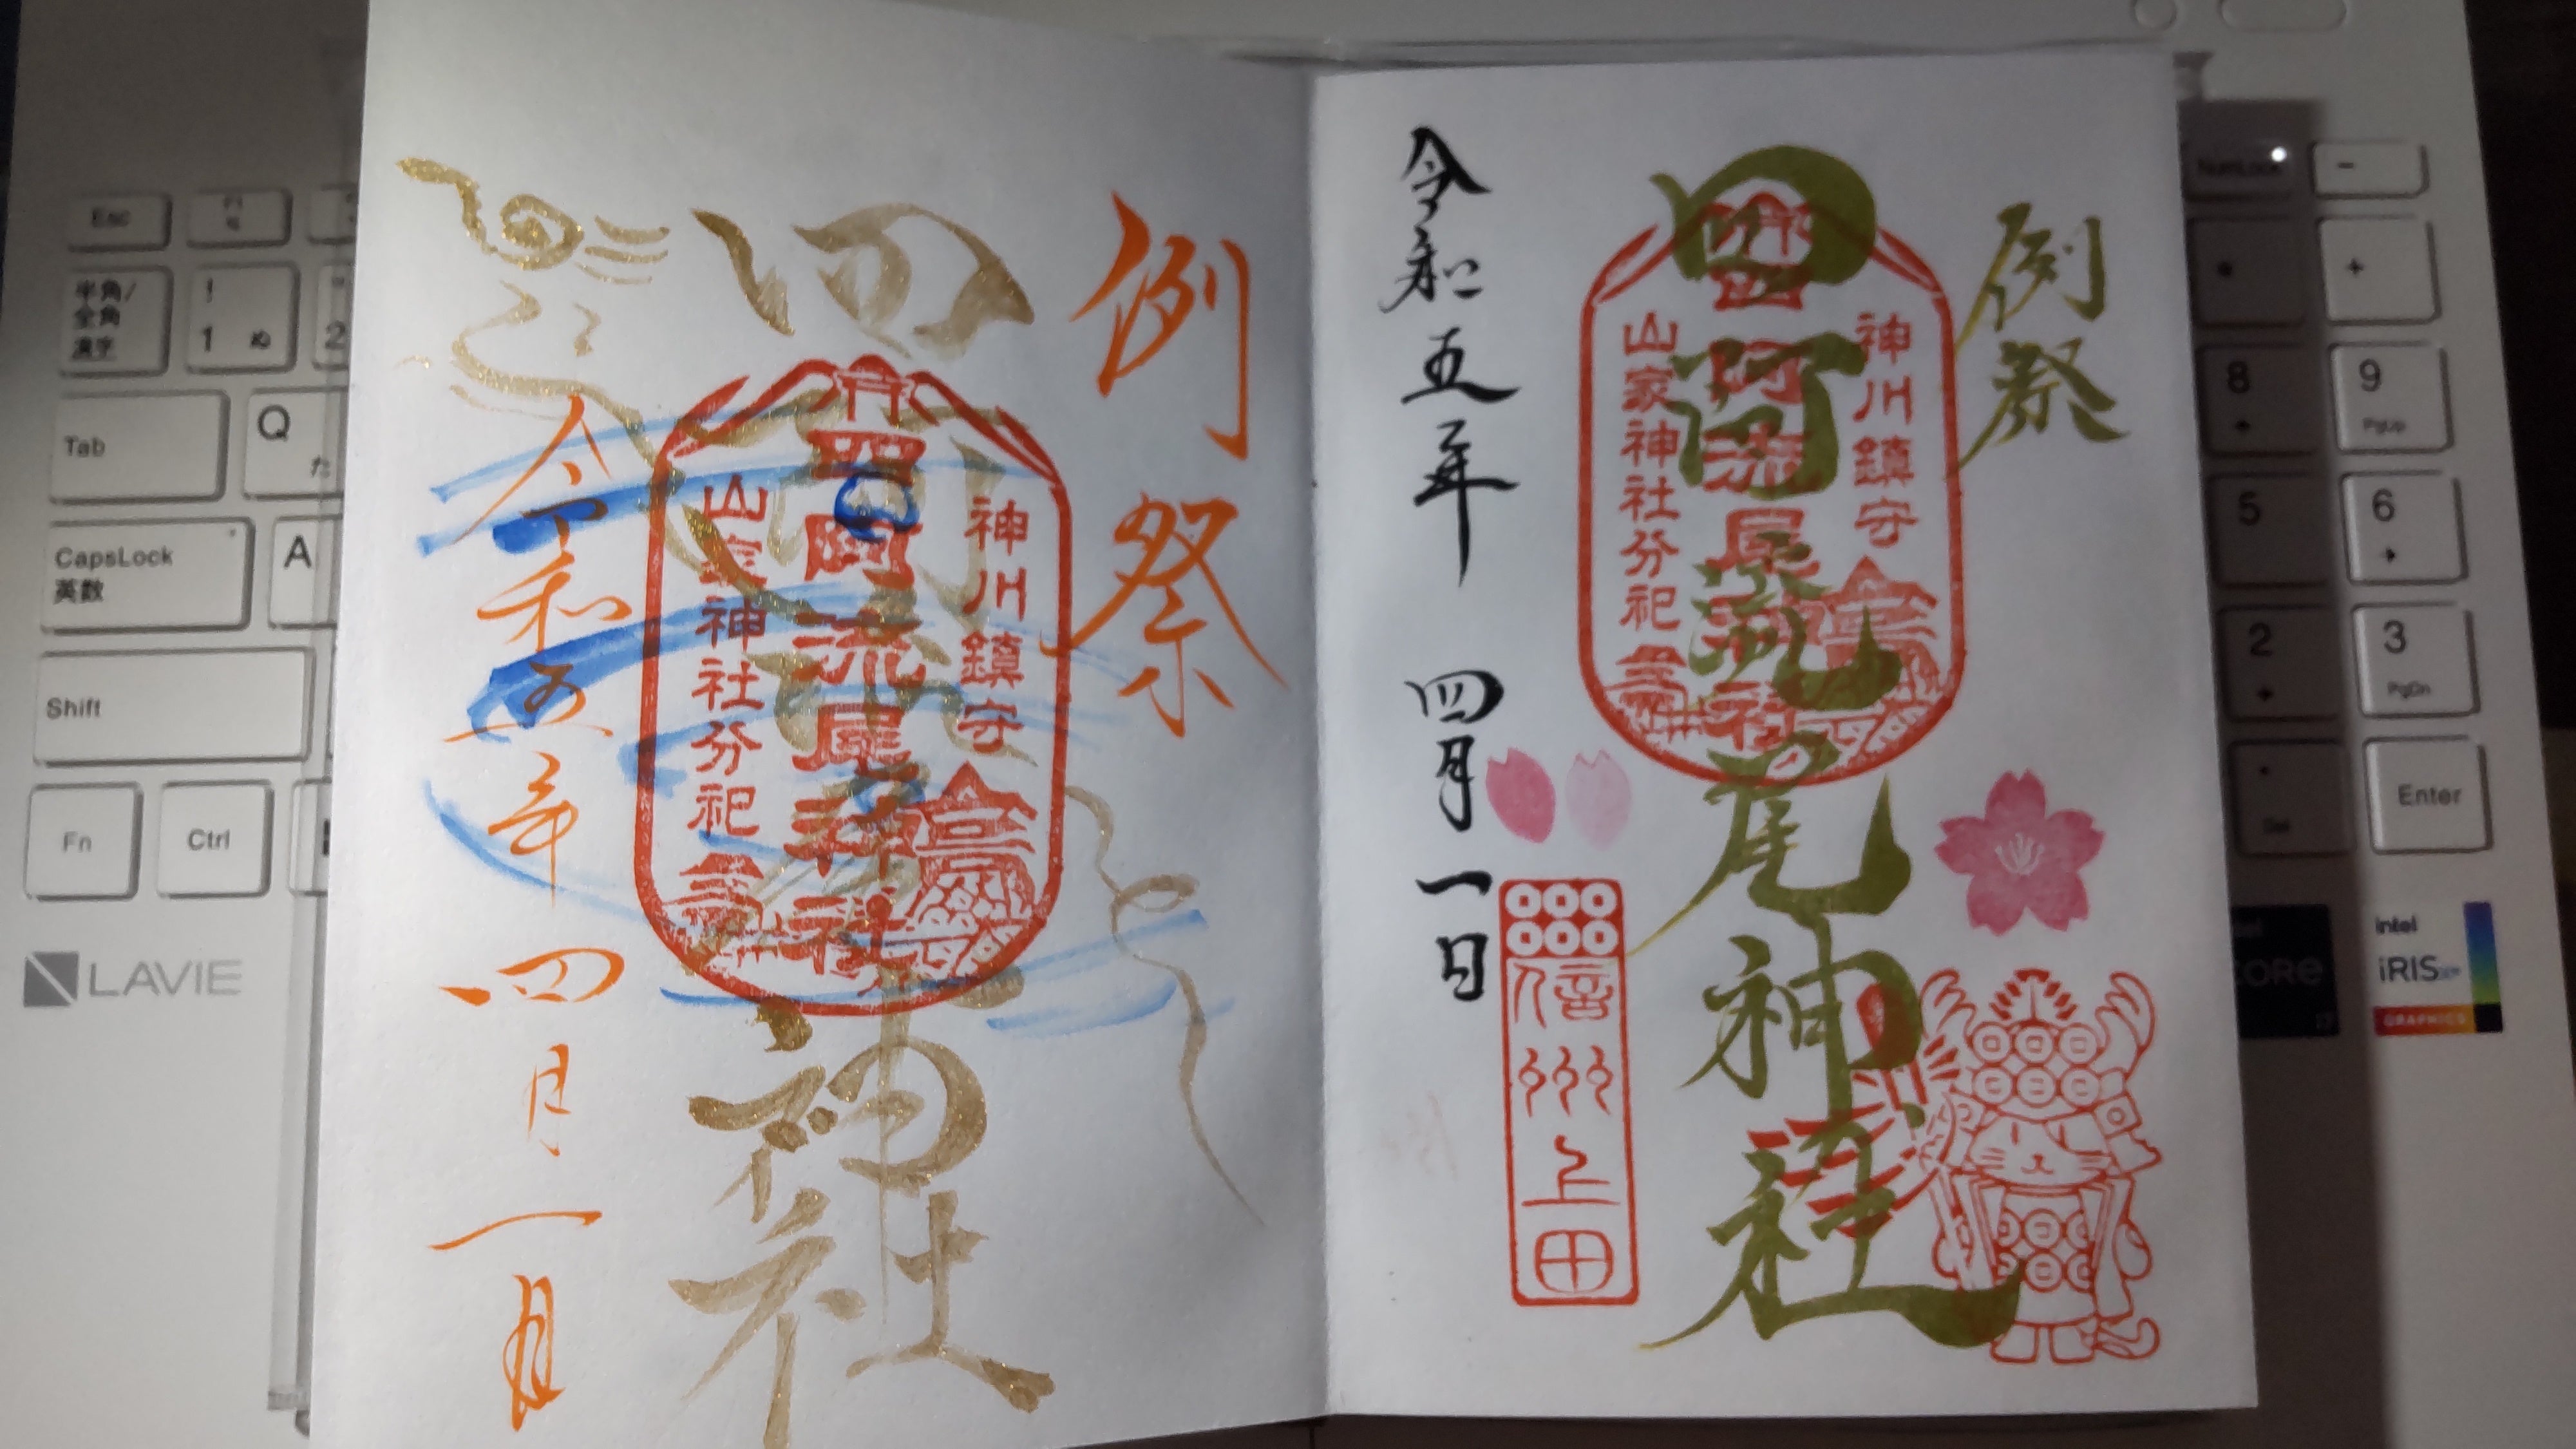 例祭
四阿流尾神社
神川鎮守
四阿流尾神社
山家神社分祀
令和五年 四月一日
信州上田
例祭
四阿流尾神社
神川鎮守
四阿流尾神社
山家神社分祀
令和五年 四月一日
Esc
半角/
全角
漢字
!
1 ぬ
2
Tab
Q
た
CapsLock
英数
A
Shift
Fn
Ctrl
LAVIE
NumLock
-
+
8
9
PgUp
5
6
2
3
PgDn
Del
Enter
intel
CORE
intel
iRIS
GRAPHICS